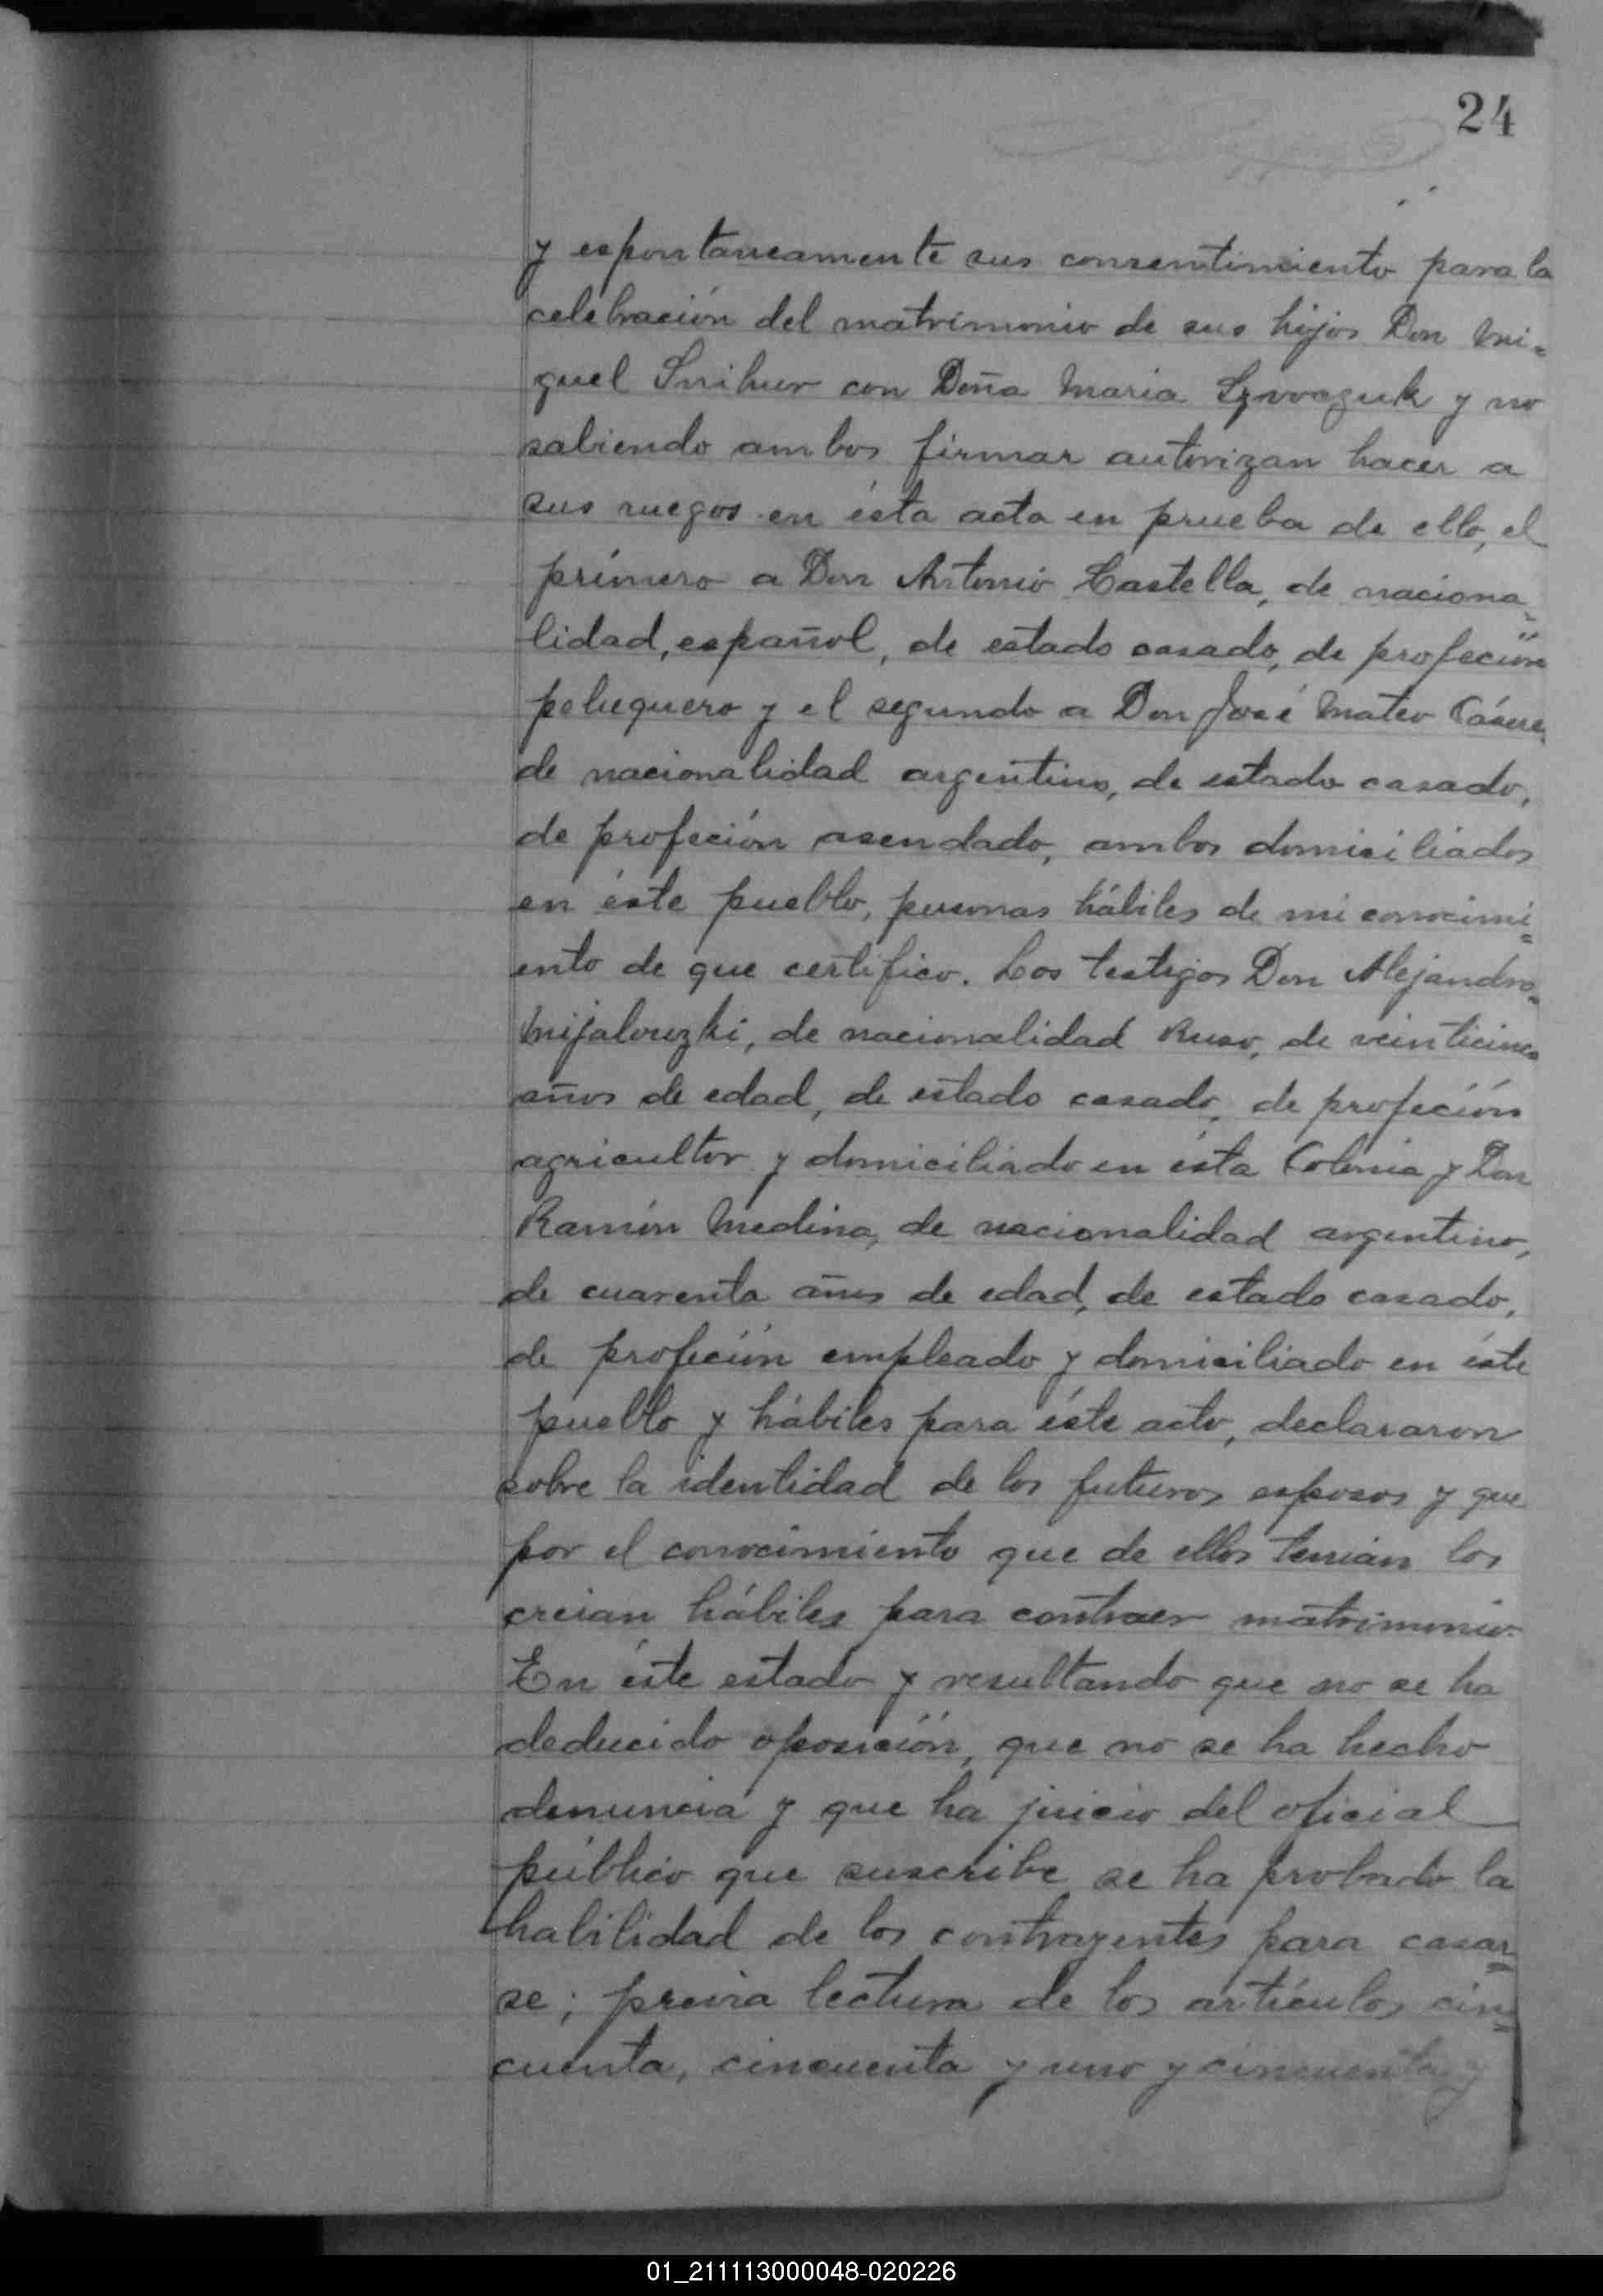 24
y espontaneamente sus consentimiento para la
celebración del matrimonio de sus hijos Don Mi=
guel Snihur con Doña Maria y no
saliendo ambos firmar autorizan hacer a
sus ruegos en ésta acta en prueba de ello, el
primero a Don Antonio Castella, de naciona=
lidad, español, de estado casado, de profeción
peluquero y el segundo a Don José Mateo
de nacionalidad argentino, de estado casado,
de profeción asendado, ambos domiciliados
en éste pueblo, personas hábiles de mi conocimi=
ento de que certifico. Los testigos Don Alejandro=
Mijalouzki, de nacionalidad Ruso, de veinticinco
años de edad, de estado casado, de profeción
agricultor y domiciliado en ésta Colonia y Don
Ramón Medina, de nacionalidad argentino,
de cuarenta años de edad, de estado casado,
de profeción empleado y domiciliado en éste
pueblo y hábiles para éste acto, declararon
sobre la identidad de los futuros esposos y que
por el conocimiento que de ellos tenian los
creian hábiles para contraer matrimonio.
En éste estado y resultando que no se ha
deducido oposición, que no se ha hecho
denuncia y que ha juicio del oficial
público que suscribe se ha probado la
habilidad de los contrayentes para casar=
se; previa lectura de los artículos cin=
cuenta, cincuenta y uno y cincuenta y
01_211113000048-020226